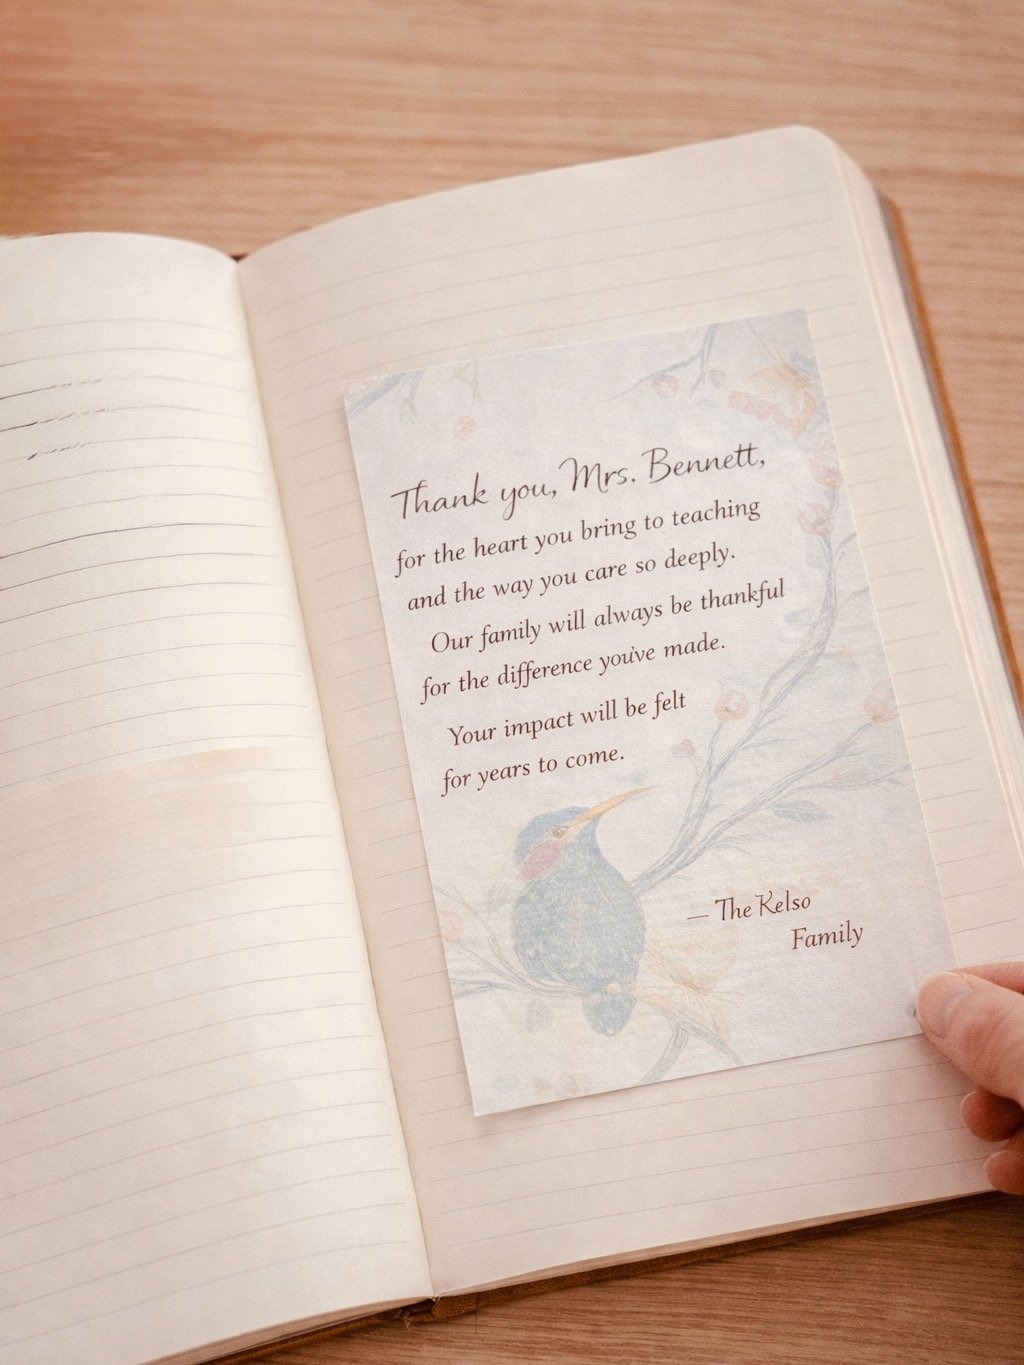 Thank you, Mrs. Bennett,
for the heart you bring to teaching
and the way you care so deeply.
Our family will always be thankful
for the difference you've made.
Your impact will be felt
for years to come.
— The Kelso
Family